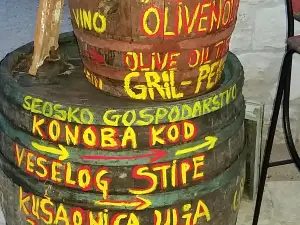 VINO
OLIVENÖL
OLIVE OIL
GRIL-PEKA
SEOSKO GOSPODARSTVO
KONOBA KOD
VESELOG STIPE
KUŠAONICA ULJA